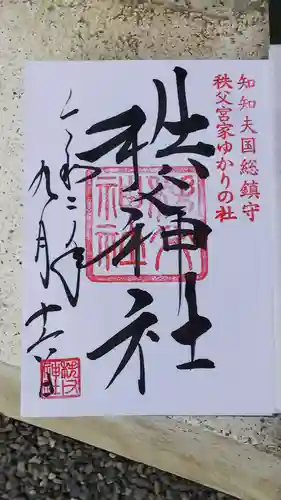 知知夫国総鎮守
秩父宮家ゆかりの社
秩父神社
令和二年
九月十六日
秩父神社